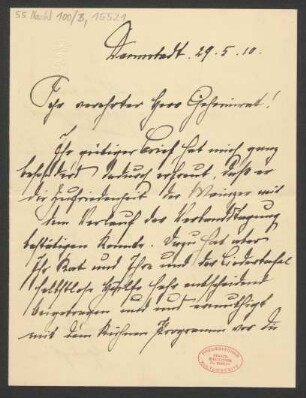 55 Nachl 100/B, 15521
Darmstadt. 29.5.10.
Sehr verehrter Herr Geheimrat!
Ihr gütiger Brief hat mich ganz
besonders dadurch erfreut, daß er
die Zufriedenheit der Mainzer mit
dem Verlauf der Verbandstagung
bestätigen konnte. Dazu hat aber
Ihr Rat und Ihre und der Liedertafel
selbstlose Hilfe sehr entscheidend
beigetragen und uns ermutigt
mit dem kühnen Programm vor die